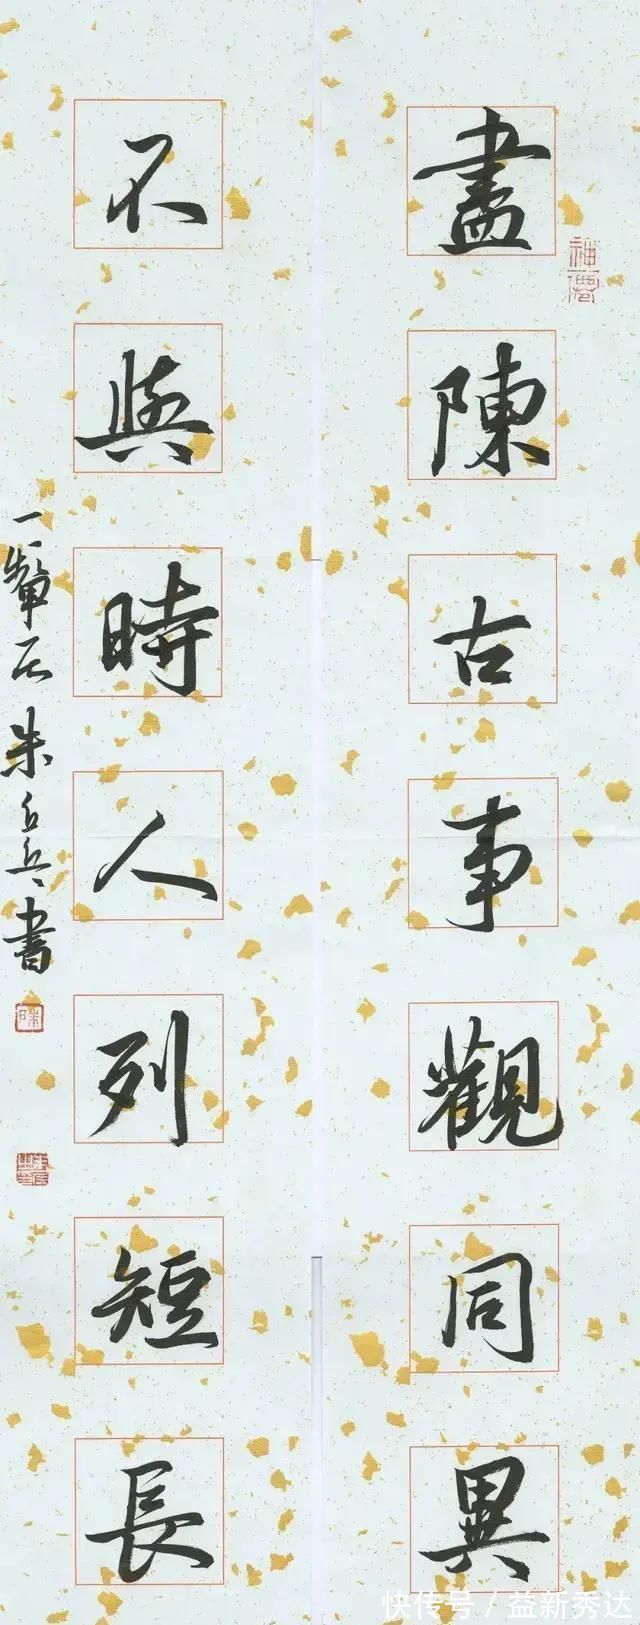 盡陳古事觀同異
不與時人列短長
朱丘兵書
快传号／益新秀达